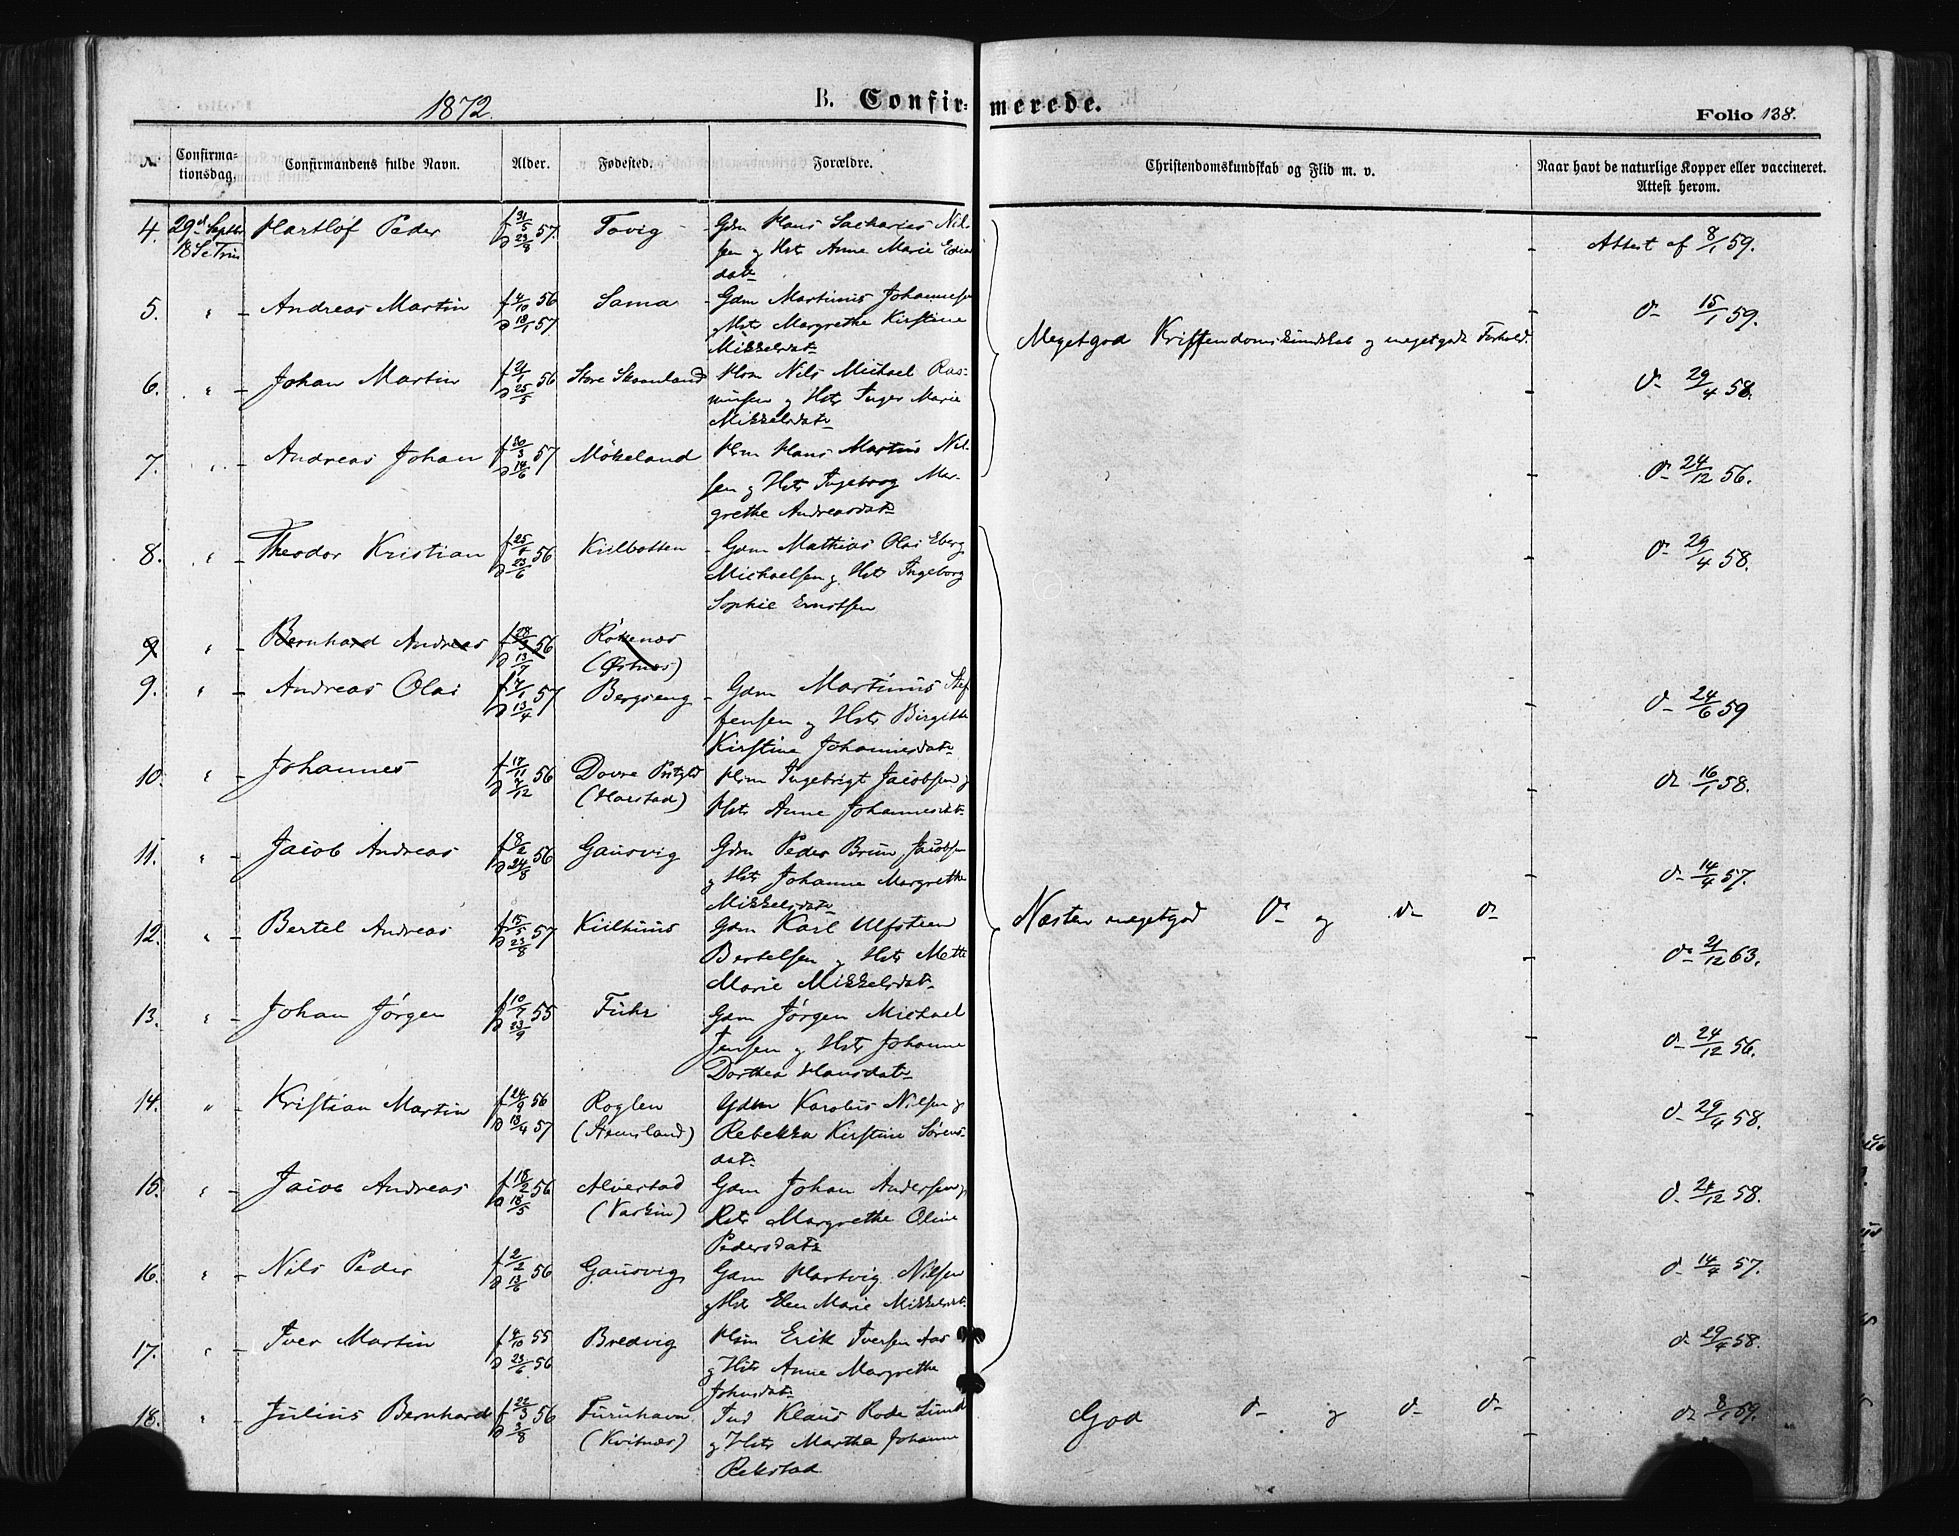 1872.
B. Confirmerede.
Folio 138.
No.
Confirma-
tionsdag.
Confirmandens fulde Navn.
Alder.
Fødested.
Forældre.
Christendomskundskab og Flid m. v.
Naar havt de naturlige Kopper eller vaccineret.
Attest herom.
4. 29d Septbr Hartlof Peder f 31/5 D 23/8 57. Tovig Gdm Hans Sacharias Nil-
18 S e Trin sen og Hstr Anne Marie
datr Attest af 8/1 59.
5. " Andreas Martin f 4/10 56 D 18/1 57 Sama Gdm Martinus Johannesen
og Hstr Margrethe Kirstine
Mikkelsdatr D- 15/1 59.
Megetgod Kristendomskundskab og megetgodt Forhold.
6. " Johan Martin f 21/1 D 25/5 56 Store Skaanland Hsm Nils Michael Ras-
musen og Hstr Inger Marie
Mikkelsdatr D- 29/4 58.
7. " Andreas Johan f 30/3 D 14/6 57 Møkeland Hsm Hans Martin Nil-
sen og Hstr Ingeborg Mar-
grethe Andreasdatr D- 24/12 56.
8. " Theodor Kristian f 25/1 D 23/6 56 Kilbotten Gdm Mathias Olai Eberg
Michaelsen og Hstr Ingeborg
Sophie Erntsen D- 29/4 58.
9 " Bernhard Andreas f 28/3 D 13/7 56 Røkenæs
(Østnæs)
9. " Andreas Olai f 7/1 D 13/4 57 Bergseng Gdm Martinus Stef
fensen og Hstr Birgitte
Kirstine Johannesdatr D- 24/6 59
10. " Johannes f 17/11 D 7/12 56 Dovre Prstgld Hsm Ingebrigt Jacobsen og
(Harstad) Hstr Anne Johannesdtr D- 16/1 58.
11. " Jacob Andreas f 8/2 D 24/8 56 Gausvig Gdm Peder Brun Jacobsen
og Hstr Johanne Margrethe
Mikkelsdatr D- 14/4 57.
Næsten megetgod D- og D- D-
12. " Bertel Andreas f 15/5 D 23/8 57 Kiilhuus Gdm Karl Ulfsteen
Bertelsen og Hstr Mette
Marie Mikkelsdatr D- 21/12 63.
13. " Johan Jørgen f 10/7 D 23/9 55 Gdm Jørgen Michael
Jensen og Hstr Johanne
Dorthea Hansdatr D- 24/12 56.
14. " Kristian Martin f 24/9 56 D 13/4 57 Roglen Gdm Karolus Nilsen og
Rebekka Kirstine Sørens-
datr D- 29/4 58.
15. " Jacob Andreas f 18/2 D 18/5 56 Alvestad Gdm Johan Andersen og
Hstr Margrethe Oline
Pedersdatr D- 21/12 58.
16. " Nils Peder f 2/2 D 13/6 56 Gausvig Gdm Hartvig Nilsen
og Hstr Elen Marie Mikkelsdatr D- 14/4 57.
17. " Iver Martin f 4/10 55 D 23/6 56 Bredvig Hsm Erik Iversen Aas
og Hstr Anne Margrethe
Johnsdatr D- 29/4 58.
18. " Julius Bernhard f 22/3 D 3/8 56 Furuhavn Ind Klaus Rode Lund
(Kvitnæs) og Hstr Martha Johanne
Rekstad God D- og D- D- D- 8/1 59.